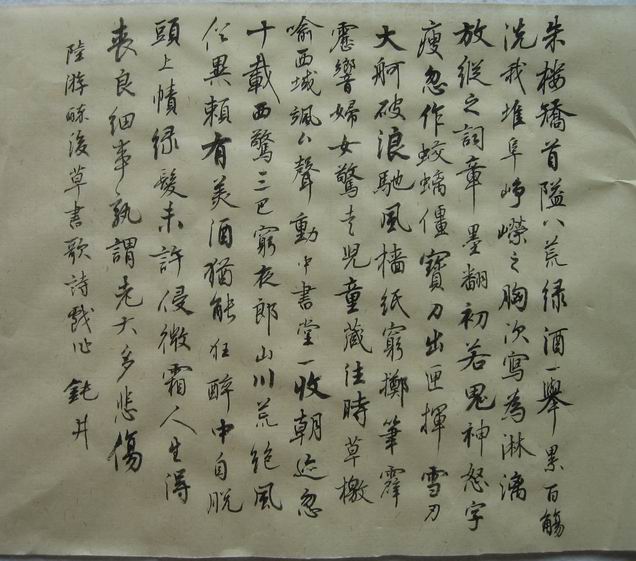 朱樓矯首隘八荒綠酒一舉累百觴
洗我堆阜崢嶸之胸次寫為淋漓
放縱之詞章墨翻初若鬼神怒字
瘦忽作蛟螭僵寶刀出匣揮雪刃
大舸破浪馳風檣紙窮擲筆霹
靂響婦女驚走兒童藏往時草檄
喻西域颯々聲動中書堂一收朝迹忽
十載西驚三巴窮夜郎山川荒絕風
俗異賴有美酒猶能狂醉中自脫
頭上幘綠髮未許侵微霜人生得
喪良細事孰謂老大多悲傷
陸游醉後草書歌詩戲作 鈍井